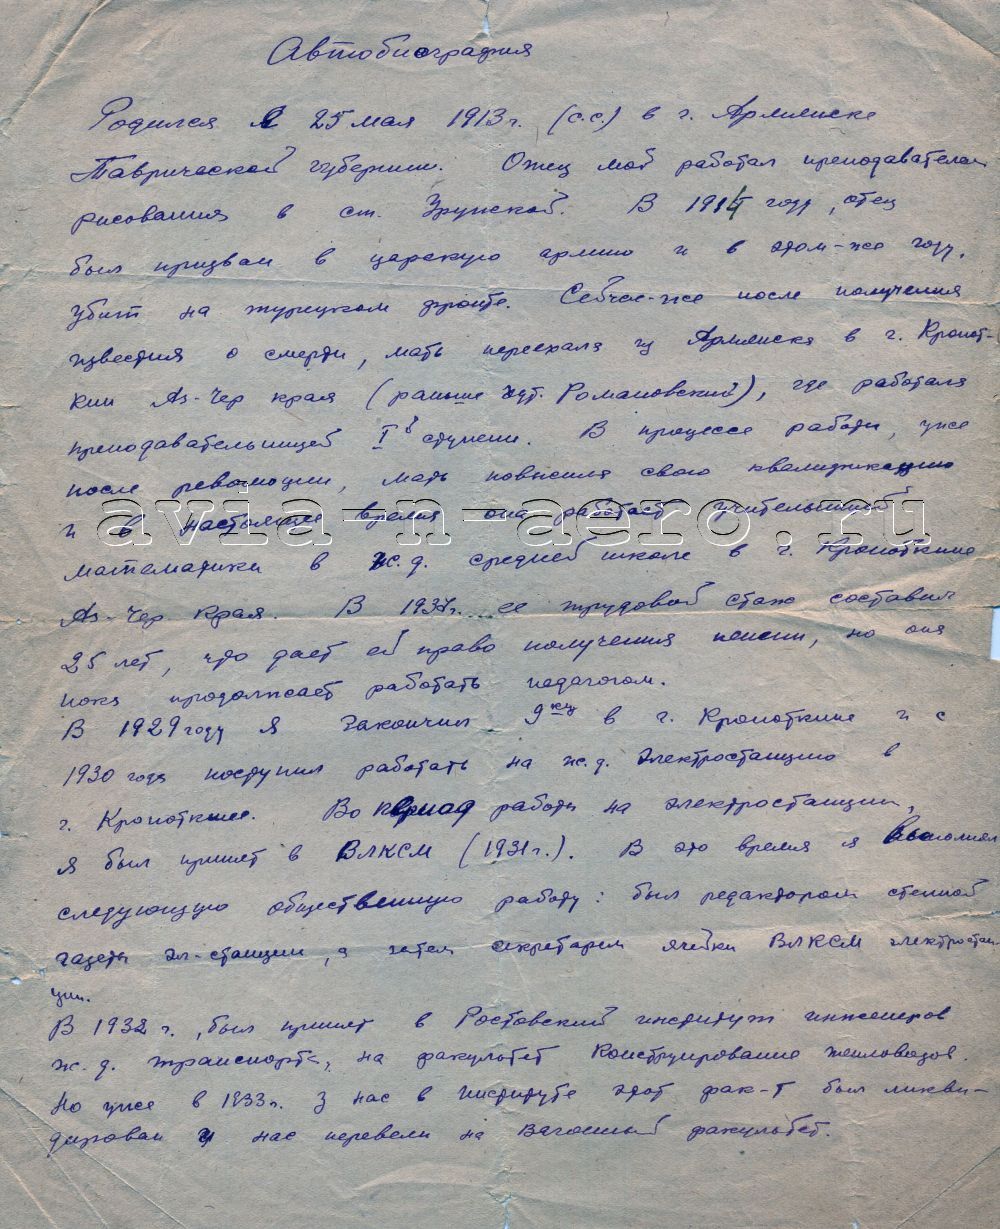 Автобиография
Родился я 25 мая 1913 г. (с.с.) в г. Армянске
Таврической губернии. Отец мой работал преподавателем
рисования в ст. В 1914 году, отец
был призван в царскую армию и в этом-же году,
убит на турецком фронте. Сейчас-же после получения
известия о смерти, мать переехала из Армянска в г. Кропот-
кин Аз-Чер края (раньше хут. Романовский), где работала
преподавательницей I й ступени. В процессе работы, уже
после революции, мать повысила свою квалификацию
и в настоящее время она работает учительницей
avia-n-aero.ru
математики в ж.д. средней школе в г. Кропоткине
Аз-Чер. Края. В 1937г. ее трудовой стаж составил
25 лет, что дает ей право получения пенсии, но она
пока продолжает работать педагогом.
В 1929 году я закончил 9 кл в г. Кропоткине и с
1930 года поступил работать на ж.д. электростанцию в
г. Кропоткине. Во период работы на электростанции,
я был принят в ВЛКСМ (1931г.). В это время я выполнял
следующую общественную работу: был редактором стенной
газеты эл-станции, а затем секретарем ячейки ВЛКСМ электростан-
ции.
В 1932 г., был принят в Ростовский институт инженеров
ж.д. транспорта, на факультет Конструирование тепловозов.
Но уже в 1933г. у нас в институте этот фак-т был ликви-
дирован и нас перевели на Вагонный факультет.